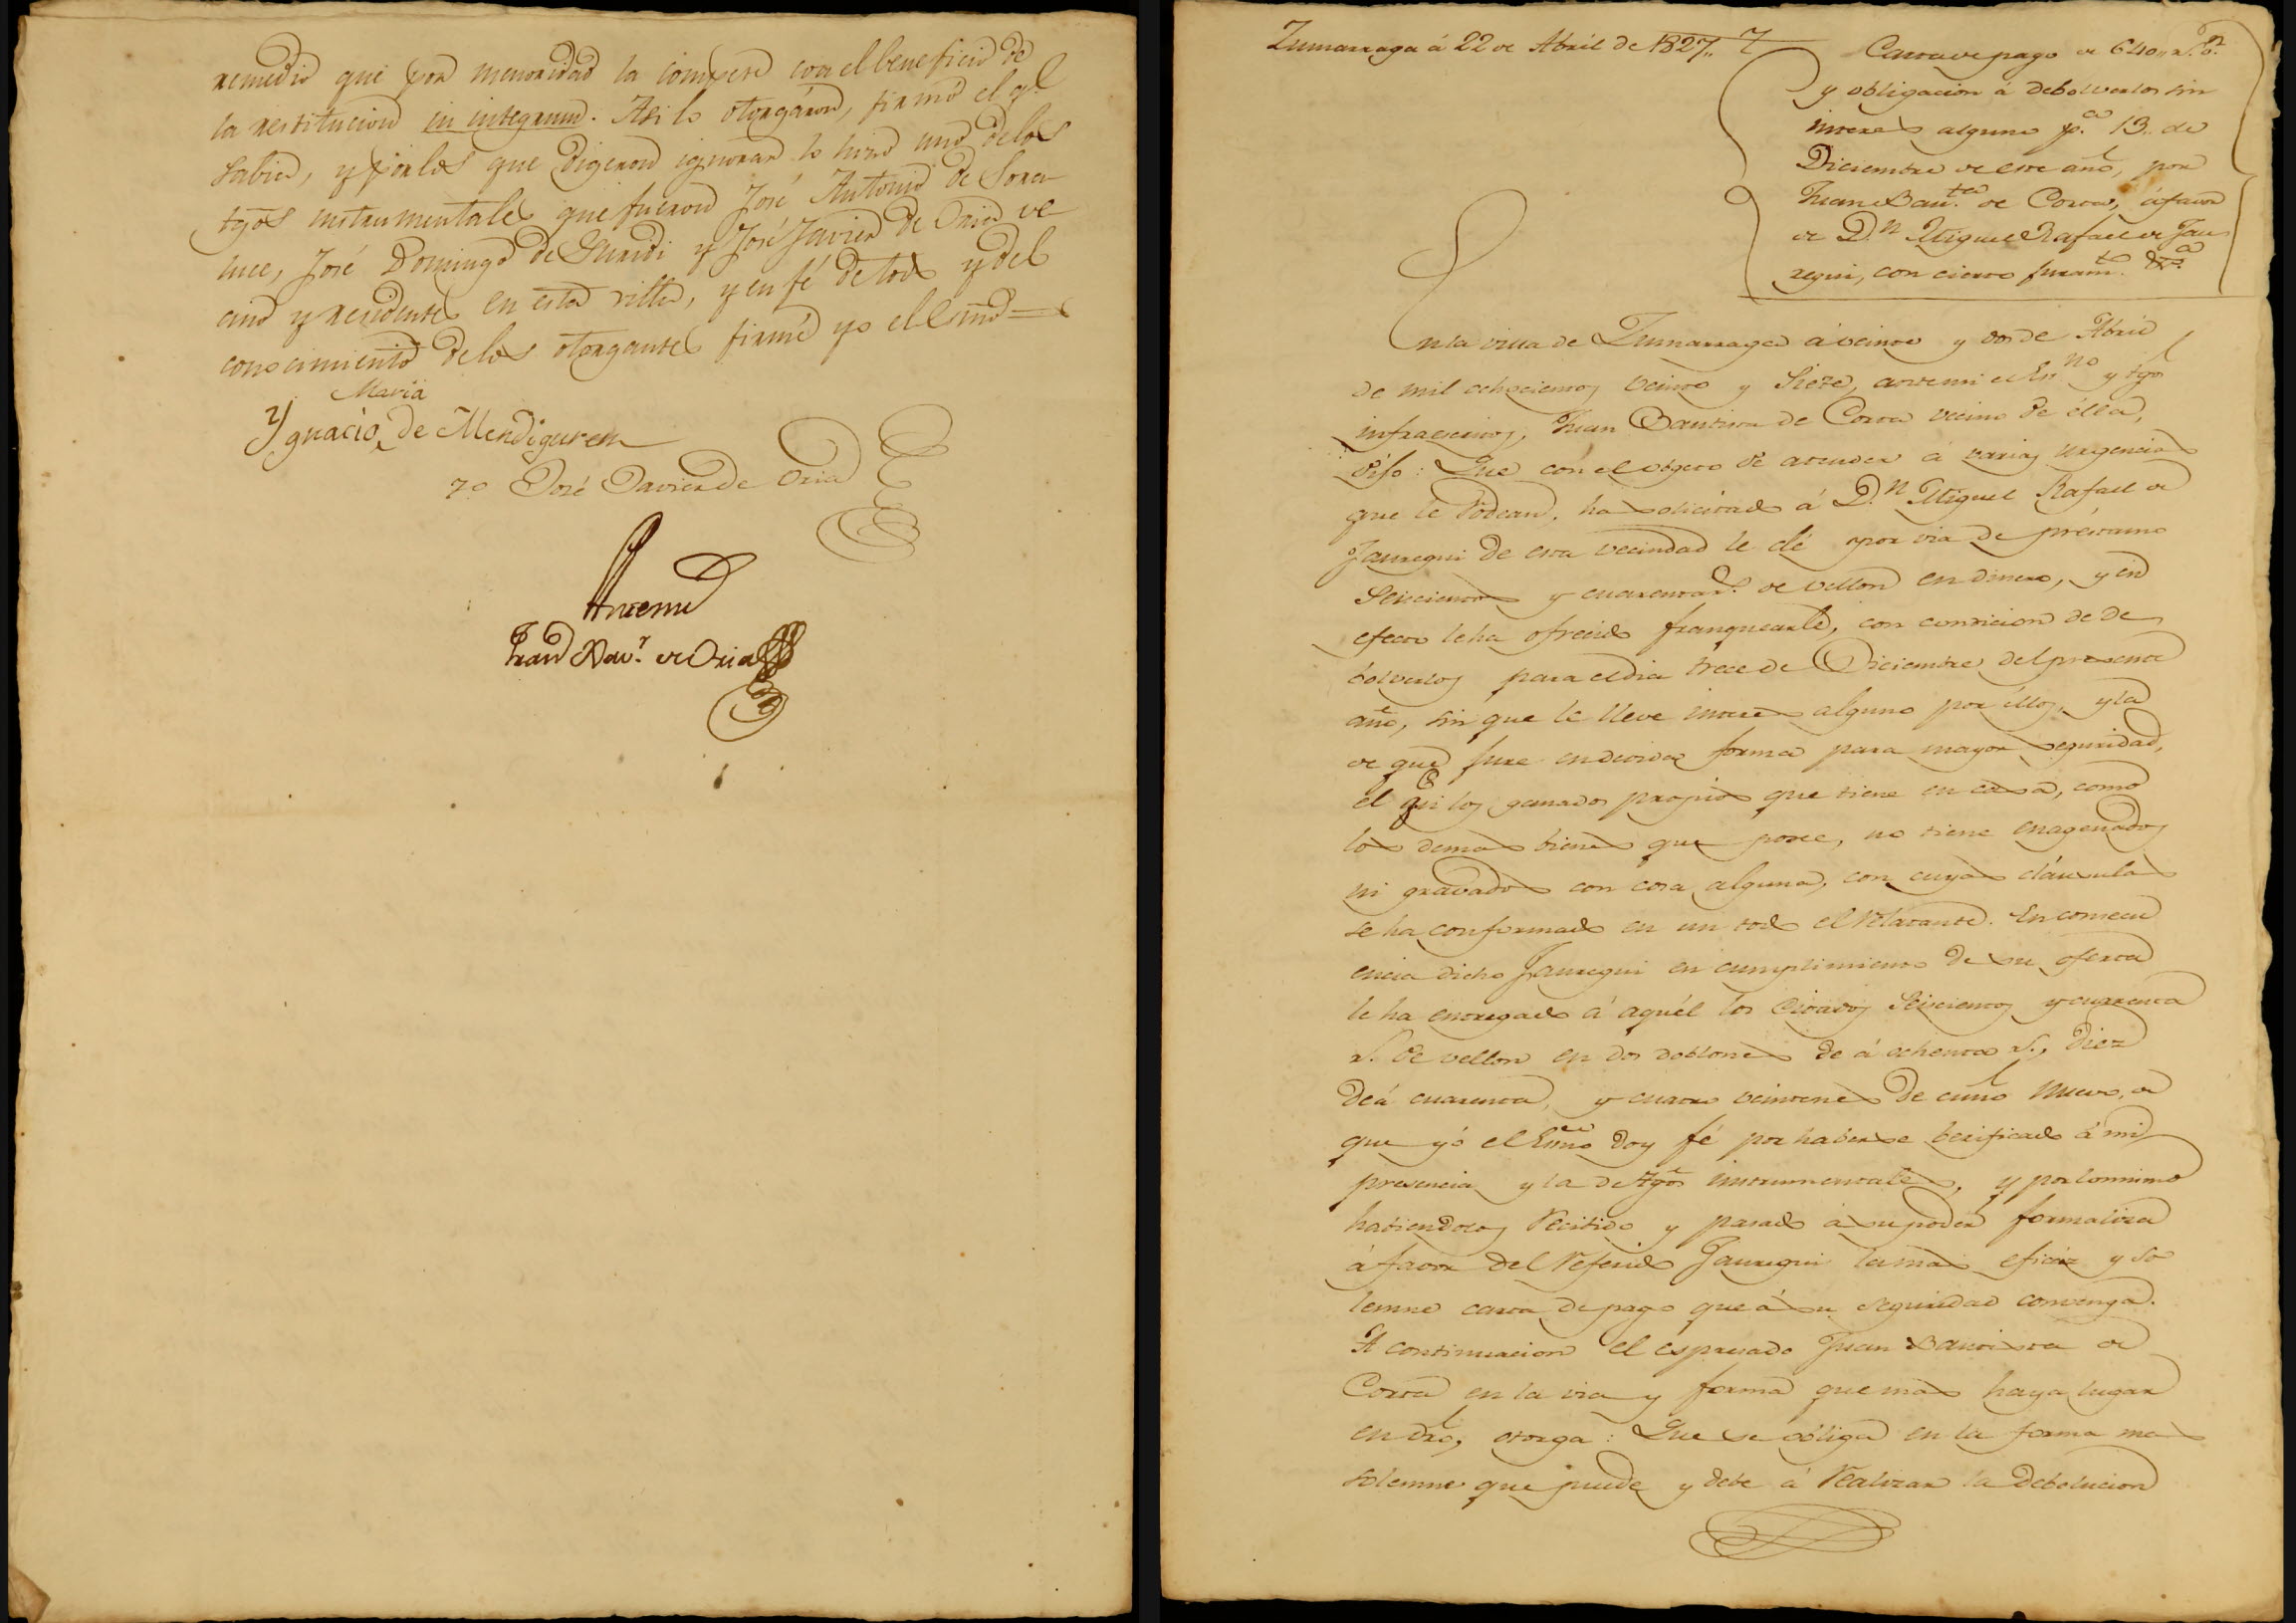 remedio que por menoridad la compete con el beneficio de
la restitucion in integrum. Asi lo otorgáron, firmó el q.e
sabia, y por los que digeron ignorar lo hizo uno de los
tgos instrumentales que fueron José Antonio de Sora-
luce, José Domingo de Yturdi y José Javier de Oria ve-
cino y residentes en esta villa, y en fé de todo y del
conocimiento de los otorgantes firmé yo el Esnō=
Maria
Ygnacio de Mendiguren
T.o José Javier de Oria
Antemi
Juan Bau.ta de Oria
Zumarraga á 22 de Abril de 1827..
Carta de pago de 640 r.s v.n
y obligacion á debolverlos sin
interes alguno p.a 13. de
Diciembre de este año, por
Juan Bau.ta de Corta, á favor
de D.n Miguel Rafael de Jau-
regui, con cierto juram.to &.a
En la villa de Zumarraga á veinte y dos de Abril
de mil ochocientos veinte y siete, ante mi el Es.no y tgos
infraescritos, Juan Bautista de Corta vecino de élla,
dijo: Que con el obgeto de atender á varias urgencias
que le rodean, ha solicitado á D.n Miguel Rafael de
Jauregui de esta vecindad le dé por via de préstamo
seiscientos y cuarenta r.s de vellon en dinero, y en
efecto le ha ofrecido franquearle, con condicion de de
bolverlos para el dia trece de Diciembre del presente
año, sin que le lleve interes alguno por éllos, y la
de que jure en devida forma para mayor seguridad,
el que los ganados propios que tiene en casa, como
los demas bienes que posee, no tiene enagenados
ni gravados con cosa alguna, con cuyas cláusulas
se ha conformado en un todo el relatante. En consecu
encia dicho Jauregui en cumplimiento de su oferta
le ha entregado á aquél los citados seiscientos y cuarenta
r.s de vellon en dos doblones de á ochenta r.s, diez
de á cuarenta, y cuatro veintenes de cuño nuevo, de
que yó el Esnō doy fé por haberse berificado á mi
presencia y la de tgos instrumentales, y por lo mismo
habiendolos recibido y pasado á su poder formaliza
á favor del referido Jauregui la mas eficáz y so
lemne carta de pago que á su seguridad convenga.
A continuacion el espresado Juan Bautista de
Corta en la via y forma que mas haya lugar
en dro, otorga: Que se obliga en la forma mas
solemne que puede y debe á realizar la debolucion